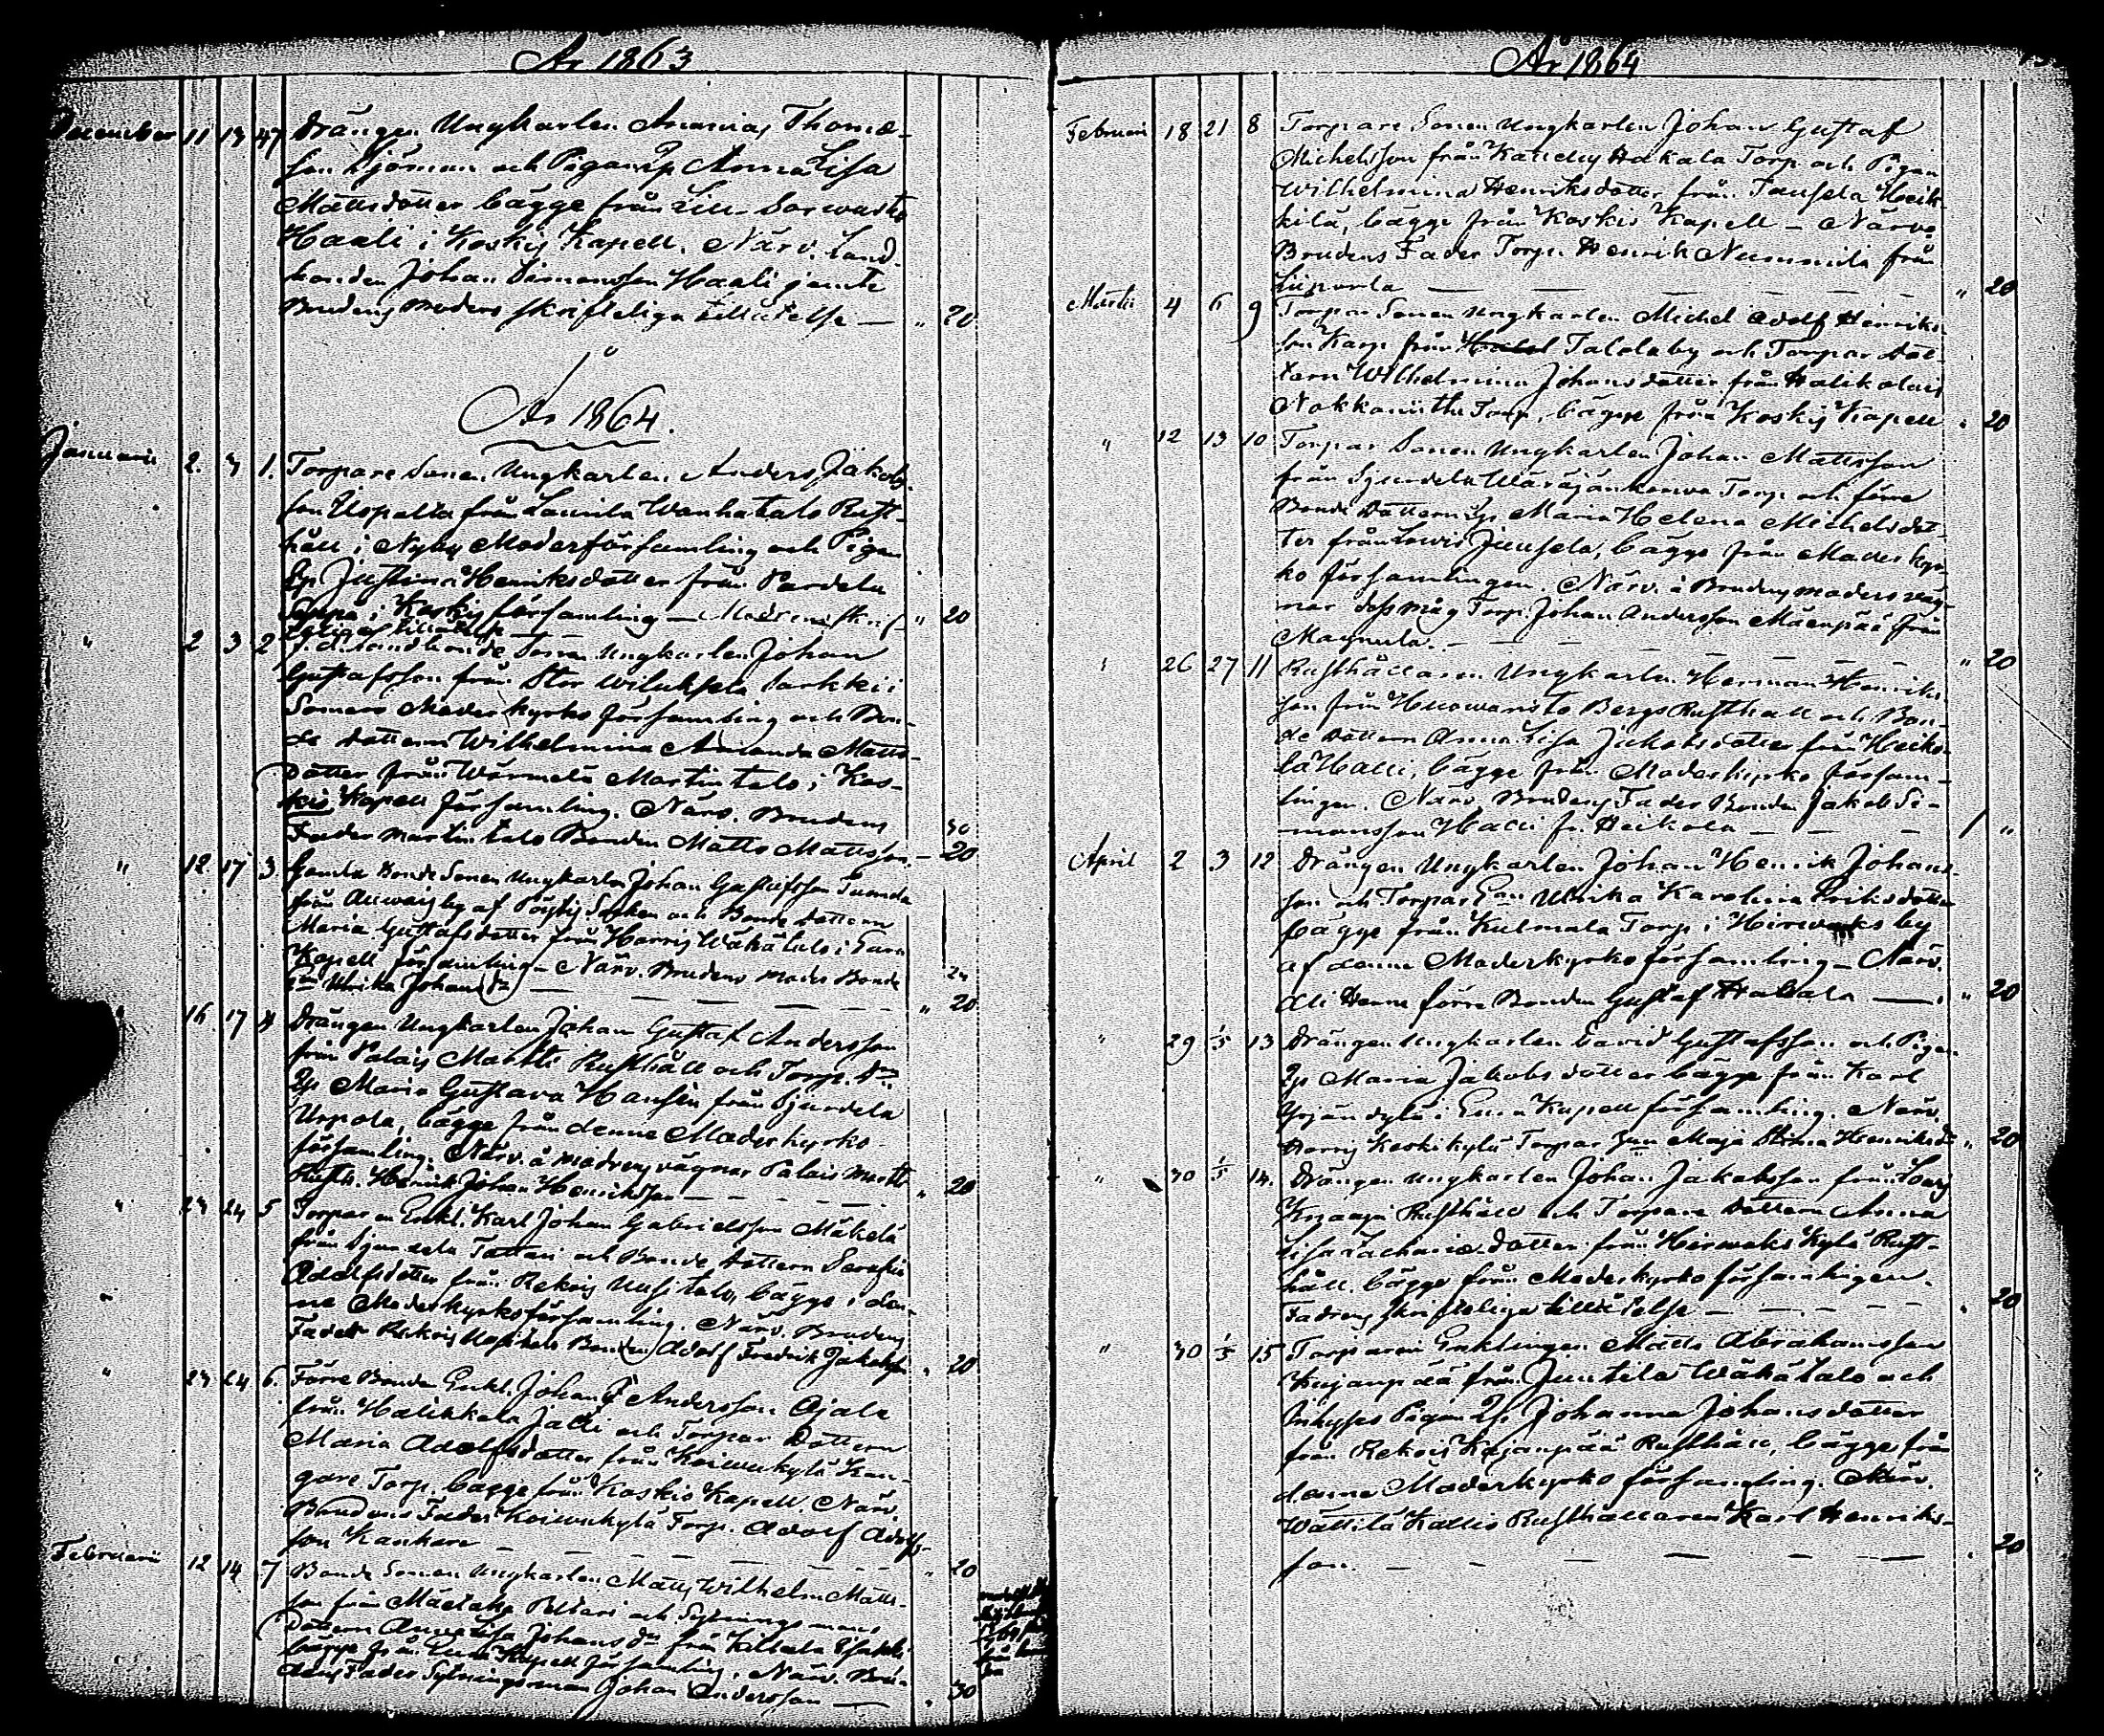 År 1863
December 11 13 47 Drängen Ungkarlen Ananias Thomæ-
son Sjöman och Pigan Anna Lisa
Mattsdotter bägge från Lill-Sorvasto
Haali i Koskis Kapell. Närv. Land-
bonden Johan Simonsson Haali jemte
Brudens moders skrifteliga tillåtelse — " 20
År 1864.
Januarii 2. 3 1. Torpare Sonen Ungkarlen Anders Jakobs-
son Uspalta från Laurila Wanhatalo Rust-
håll i Nyby Moderförsamling och Pigan
Justina Henriksdotter från Pardela
i Koskis församling — Modrens skrif- " 20
teliga tillåtelse
" 2 3 2 f. d. Landbonde Sonen Ungkarlen Johan
Gustafsson från Stor Wiluksela Sarkki i
Somero Moderkyrko församling och Bon-
de dottern Wilhelmina Amanda Matts-
dotter från Wärmelä Martintalo, i Kos-
kis Kapell församling. Närv. Brudens 30
Fader Martintalo Bonden Matts Mattsson — 20
" 12. 17 3 Gamla Bonde Sonen Ungkarlen Johan Gustafsson
från af Pöytis Socken och Bonde dottern
Maria Gustafsdotter från Harris Wähätalo i
Kapell församling — Närv. Brudens moder Bonde 24
Ulrika Johansdr — — — — — " 20
16. 17 4 Drängen Ungkarlen Johan Gustaf Andersson
från Palais Martti Rusthåll och Torp. Dr
Maria Gustava Hansin från Sjundela
Uspola, bägge från denne Moderkyrko
församling. Närv. å modrens vägnar Palais Martti
Rusth. Henrik Johan Henriksson — — — — " 20
" 23 24 5 Torparen Enkl. Karl Johan Gabrielsson Mäkelä
från Sjundela Tattari och Bonde dottern Serafia
Adolfsdotter från Rekois Uusitalo, bägge i den-
ne Moderkyrkoförsamling. Närv. Brudens
Fader Rekois Uusitalo Bonden Adolf Fredrik Jakobsson " 20
" 23 24 6. Förre Bonden Enkl. Johan Andersson Ojala
från Halikkala Jalli och Torpar Dottern
Maria Adolfsdotter från Koiwukylä Kan-
gare Torp, bägge från Koskis Kapell. Närv.
Brudens Fader Koiwukylä Torp. Adolf Adolfs-
son Kankare — — — — — " 20
Februarii 12 14 7 Bonde Sonen Ungkarlen Matts Wilhelm Matts-
son från Mäetaka Peltari och Sytningsmans
Dottern Anna Lisa Johansdr från
bägge från Eura Kapell församling. Närv. Bru-
dens Fader Sytningsman Johan Andersson — " 30
År 1864
Februari 18 21 8 Torpare Sonen Ungkarlen Johan Gustaf
Michelsson från Hakala Torp och Pigan
Wilhelmina Henriksdotter från Tausela Heik-
kilä, bägge från Koskis Kapell — Närv.
Brudens Fader Torp. Henrik Nummila från
Liiporla — — — — — — " 20
Martii 4 6 9 Torpar Sonen Ungkarlen Michel Adolf Henriks-
son Karp från Talolaby och Torpar Dot-
tern Wilhelmina Johansdotter från Halikolais
Torp, bägge från Koskis Kapell " 20
" 12 13 10 Torpar Sonen Ungkarlen Johan Mattsson
från Sjundela Wäräjänkorwa Torp och förre
Bonde Dottern Maria Helena Michelsdot-
ter från Juusela, bägge från Moderkyr-
ko församlingen. Närv. å Brudens moders väg-
nar dess måg Torp. Johan Andersson Mäenpää från
Maynula. — — — — — — " 20
" 26 27 11 Rusthållaren Ungkarlen Herman Henriks-
son från Huowaristo Bergs Rusthåll och Bon-
de Dottern Anna Lisa Jakobsdotter från Heiko-
la Halli, bägge från Moderkyrko försam-
lingen. Närv. Brudens Fader Bonden Jakob Si-
monsson Halli fr. Heikola — — — 1 "
April 2 3 12 Drängen Ungkarlen Johan Henrik Johans-
son och Torpar Enn Ulrika Karolina Eriksdotter
bägge från Kulmala Torp i Hirwaks by
af denne Moderkyrkoförsamling — Närv.
förre Bonden Gustaf — " 20
" 29 1/5 13 Drängen Ungkarlen David Gustafsson och Pigan
Maria Jakobsdotter bägge från Karl
Yrjänkylä i Eura Kapell församling. Närv.
Harris Keskikylä Torpar Maja Stina Henriksdr " 20
" 30 1/5 14. Drängen Ungkarlen Johan Jakobsson från
Rusthåll och Torpare Dottern Anna
Lisa Zachariædotter från Hirwaks Kylä Rust-
håll, bägge från Moderkyrko församlingen.
Fadrens skrifteliga tillåtelse — — — — " 20
" 30 1/5 15 Torparen Enklingen Matts Abrahamsson
Kujanpää från Juntela Wähätalo och
Inhyses Pigan Johanna Johansdotter
från Rekois Kujanpää Rusthåll, bägge från
denne Moderkyrko församling. Närv.
Wättilä Kallio Rusthållaren Karl Henriks-
son. — — — — — " 20